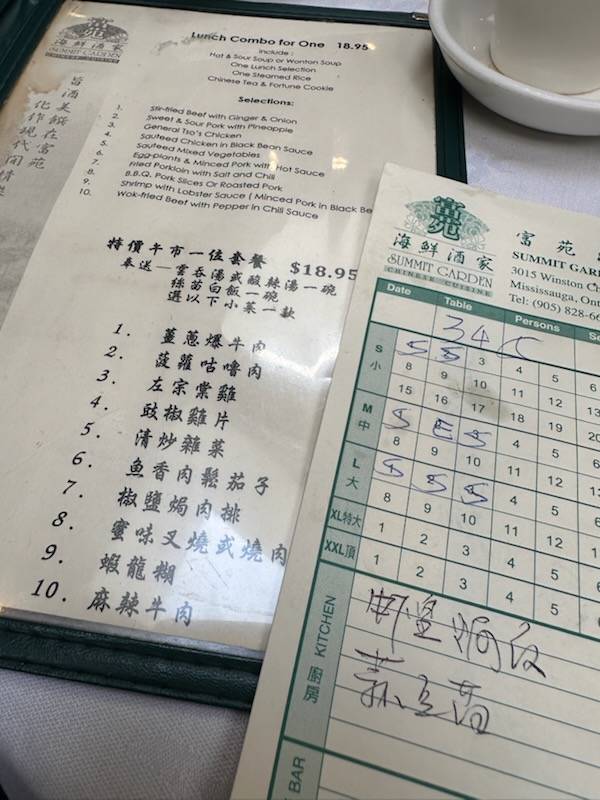 富苑
海鮮酒家
SUMMIT GARDEN
CHINESE CUISINE
Lunch Combo for One 18.95
Include :
Hot & Sour Soup or Wonton Soup
One Lunch Selection
One Steamed Rice
Chinese Tea & Fortune Cookie
Selections:
1. Stir-fried Beef with Ginger & Onion
2. Sweet & Sour Pork with Pineapple
3. General Tso's Chicken
4. Sauteed Chicken in Black Bean Sauce
5. Sauteed Mixed Vegetables
6. Egg-plants & Minced Pork with Hot Sauce
7. Fried Porkloin with Salt and Chili
8. B.B.Q. Pork Slices Or Roasted Pork
9. Shrimp with Lobster Sauce ( Minced Pork in Black Be
10. Wok-fried Beef with Pepper in Chili Sauce
特價午市一位套餐 $18.95
奉送—雲吞湯或酸辣湯一碗
絲苗白飯一碗
選以下小菜一款
1. 薑蔥爆牛肉
2. 菠蘿咕嚕肉
3. 左宗棠雞
4. 豉椒雞片
5. 清炒雜菜
6. 魚香肉鬆茄子
7. 椒鹽焗肉排
8. 蜜味叉燒或燒肉
9. 蝦龍糊
10. 麻辣牛肉
富苑
海鮮酒家
SUMMIT GARDEN
CHINESE CUISINE
富苑
SUMMIT GAR
3015 Winston Ch
Mississauga, Ont
Tel: (905) 828-66
Date Table Persons Se
34
S 小 3 4 5 6
8 9 10 11 12 13
15 16 17 18 19 20
M 中 4 5 6
8 9 10 11 12
L 大 4 5
8 9 10 11 12
XL特大 1 2 3 4 5
XXL頂 1 2 3 4 5
KITCHEN 廚房
BAR